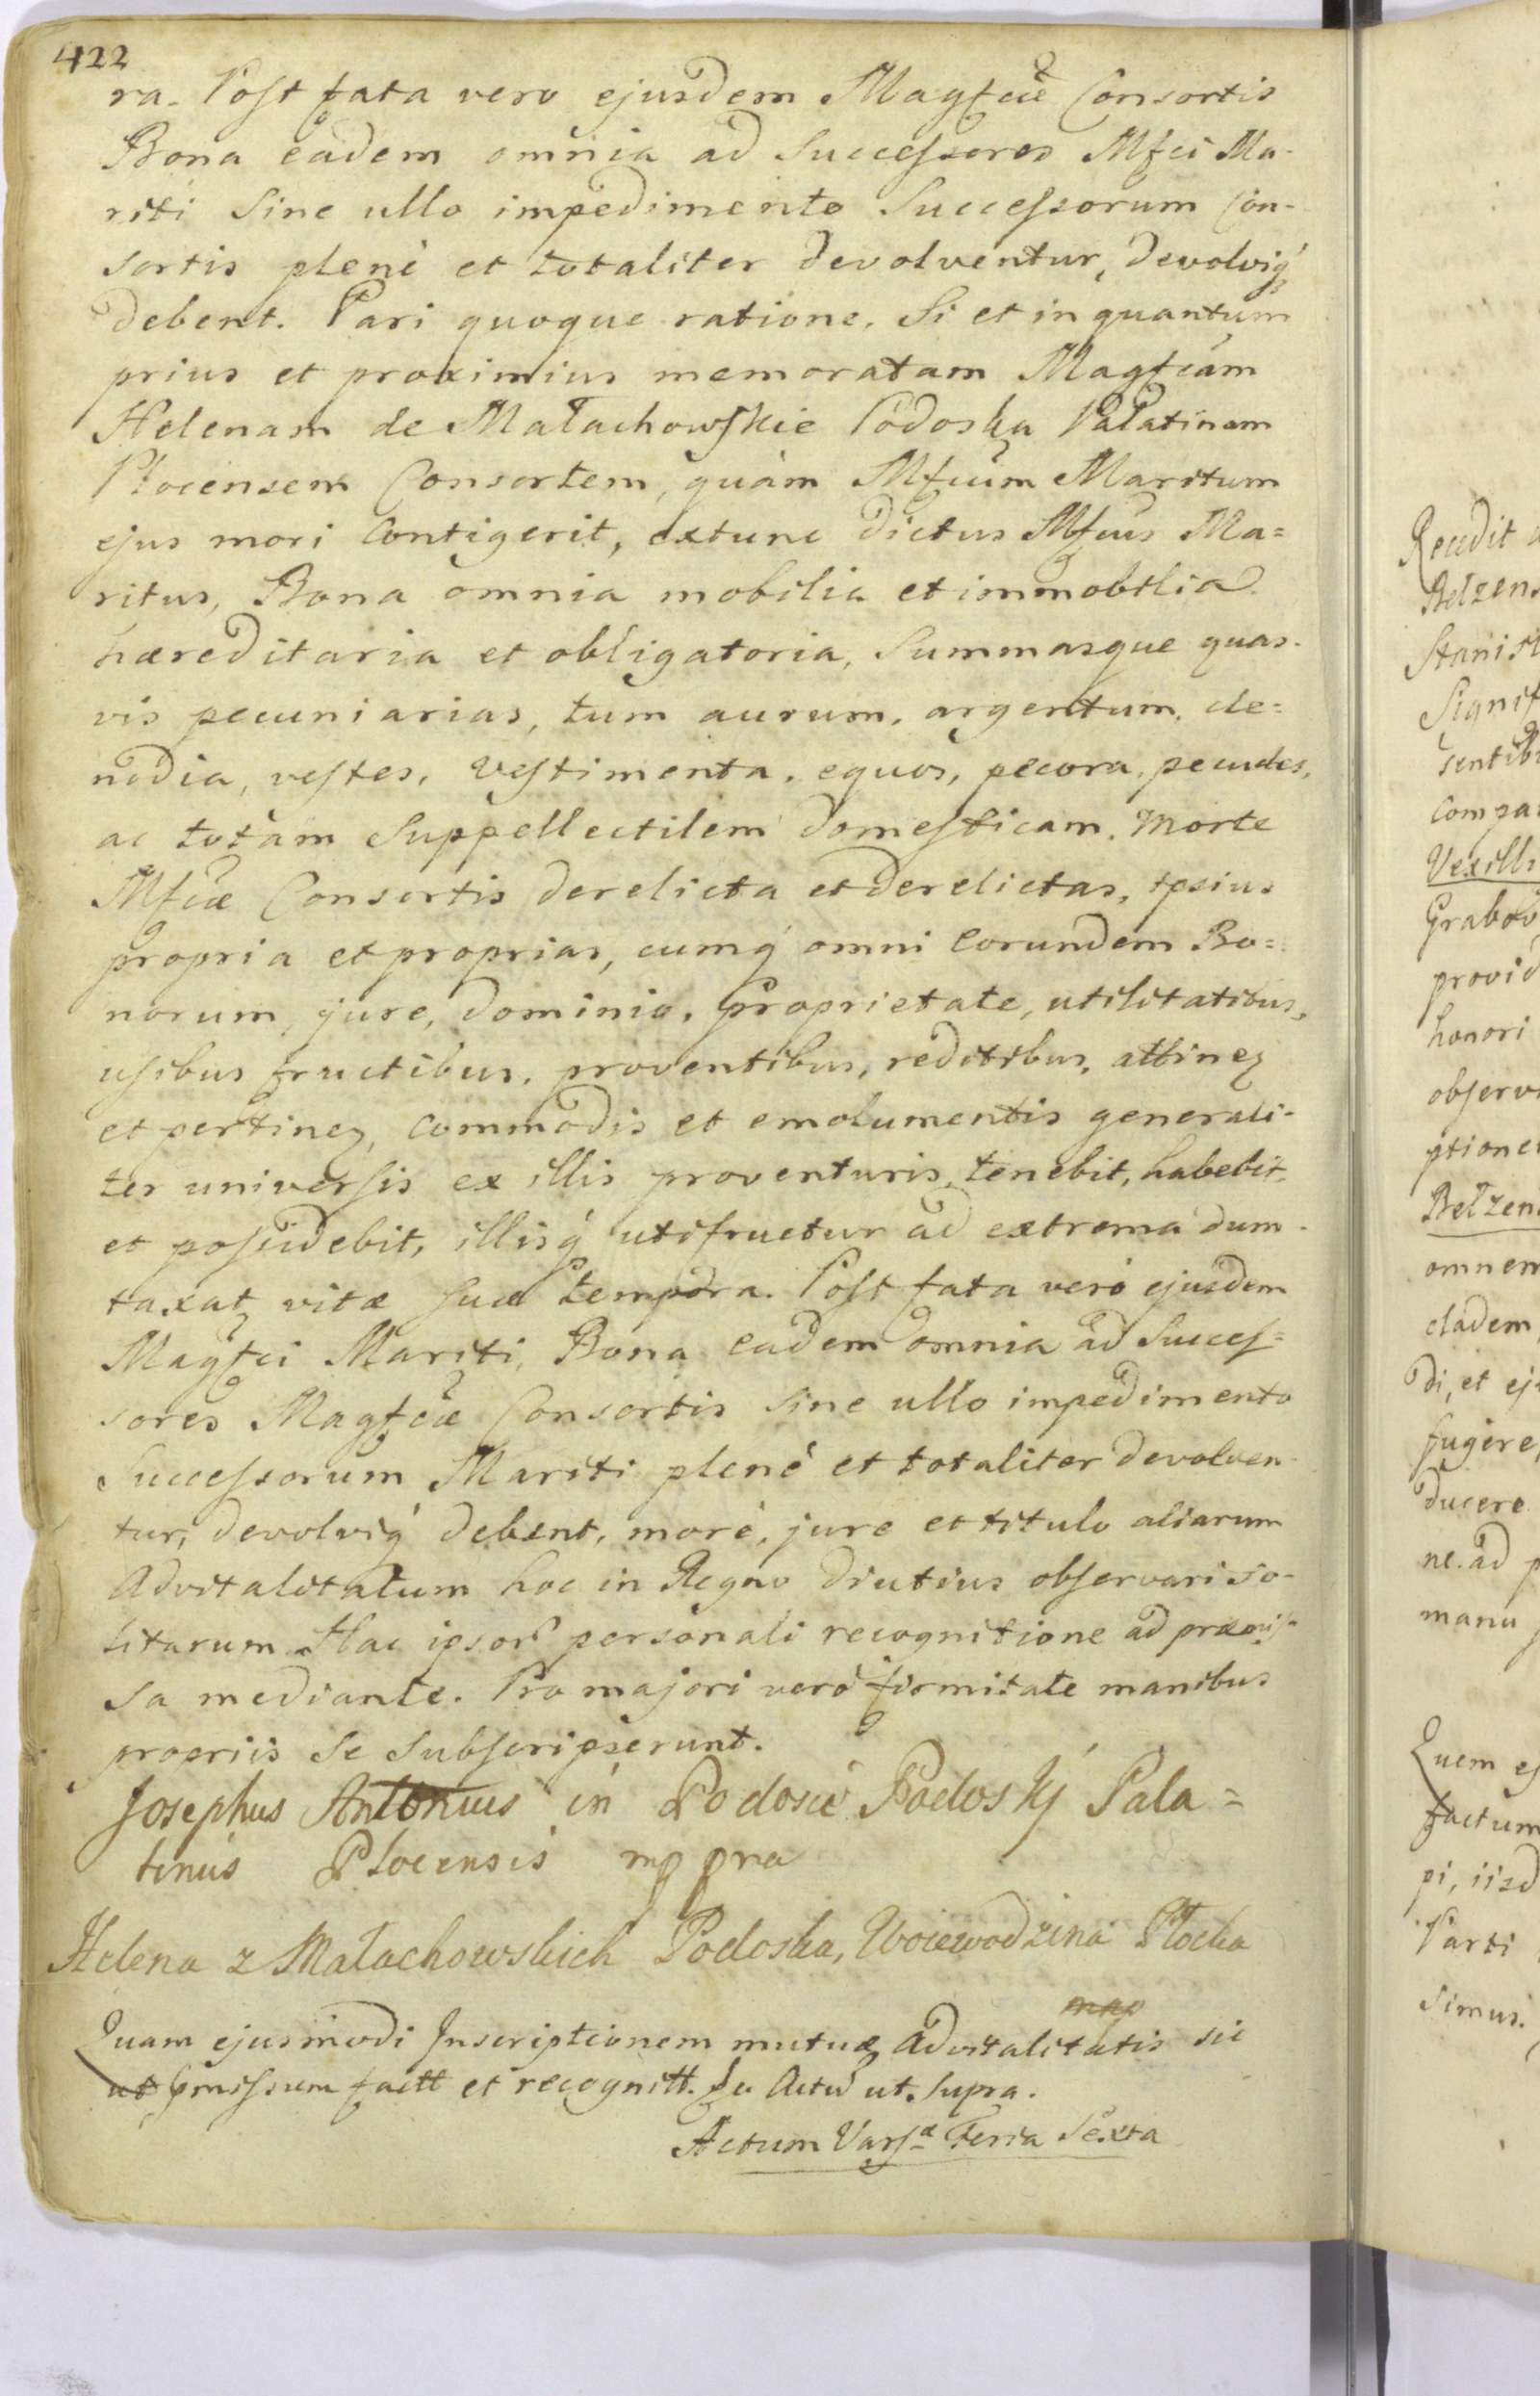 422
ra. Post fata vero ejusdem Magfcæ Consortis
Bona eadem omnia ad Successores Mfci Ma-
riti Sine ullo impedimento Successorum Con-
sortis plenè et totaliter devolventur, devolviq́
debent. Pari quoque ratione, Si et in quantum
prius et proximius memoratam Magfcam
Helenam de Małachowskie Podoska Palatinam
Plocensem Consortem, quàm Mfcum Maritum
ejus mori Contigerit, extunc dictus Mfcus Ma=
ritus, Bona omnia mobilia et immobilia
hæreditaria et obligatoria, Summasque quas-
vis pecuniarias, tum aurum, argentum, cle=
nodia, vestes, Vestimenta, equos, pecora, pecudes,
ac totam Suppellectilem domesticam, Morte
Mfcæ Consortis derelicta et derelictas, ipsius
propria et proprias, cumq́ omni Eorundem Bo=
norum, jure, dominio, proprietate, utilitatibus,
usibus fructibus, proventibus, reditibus, attinez
et pertinez, Commodis et emolumentis generali-
ter universis ex illis proventuris, tenebit, habebit,
et possidebit, illisq́ utifruetur ad extrema dum-
taxat vitæ suæ tempora. Post fata verò ejusdem
Magfci Mariti, Bona Eadem omnia ad Succes=
sores Magfcæ Consortis Sine ullo impedimento
Successorum Mariti plenè et totaliter devolven-
tur, devolviq́ debent, morè, jure et titulo aliarum
Advitalitatum hoc in Regno diutius observari so-
litarum. Hac ipsor personali recognitione ad præmis-
sa mediante. Pro majori verò firmitate manibus
propriis Se Subscripserunt.
Josephus Antonius in Podosie Podoskÿ Pala=
tinus Plocensis mppra
Helena z Małachowskich Podoska, Woiewodzina Płocka
Quam ejusmodi Inscriptionem mutuæ Advitalitatis sic
ut pmissum factt et recognitt. In Actu ut Supra.
Actum Varsæ Feria Sexta
Recedit
Belzens
Stanisł
Signif
sentib
Compa
Vexilli
Grabow
provid
honori
observ
ptione
Bełzen
omnem
cladem
di, et ej
fugere,
ducere
ne. ad p
manu
Quem ej
factum
pi, iisd
Parti
simus.